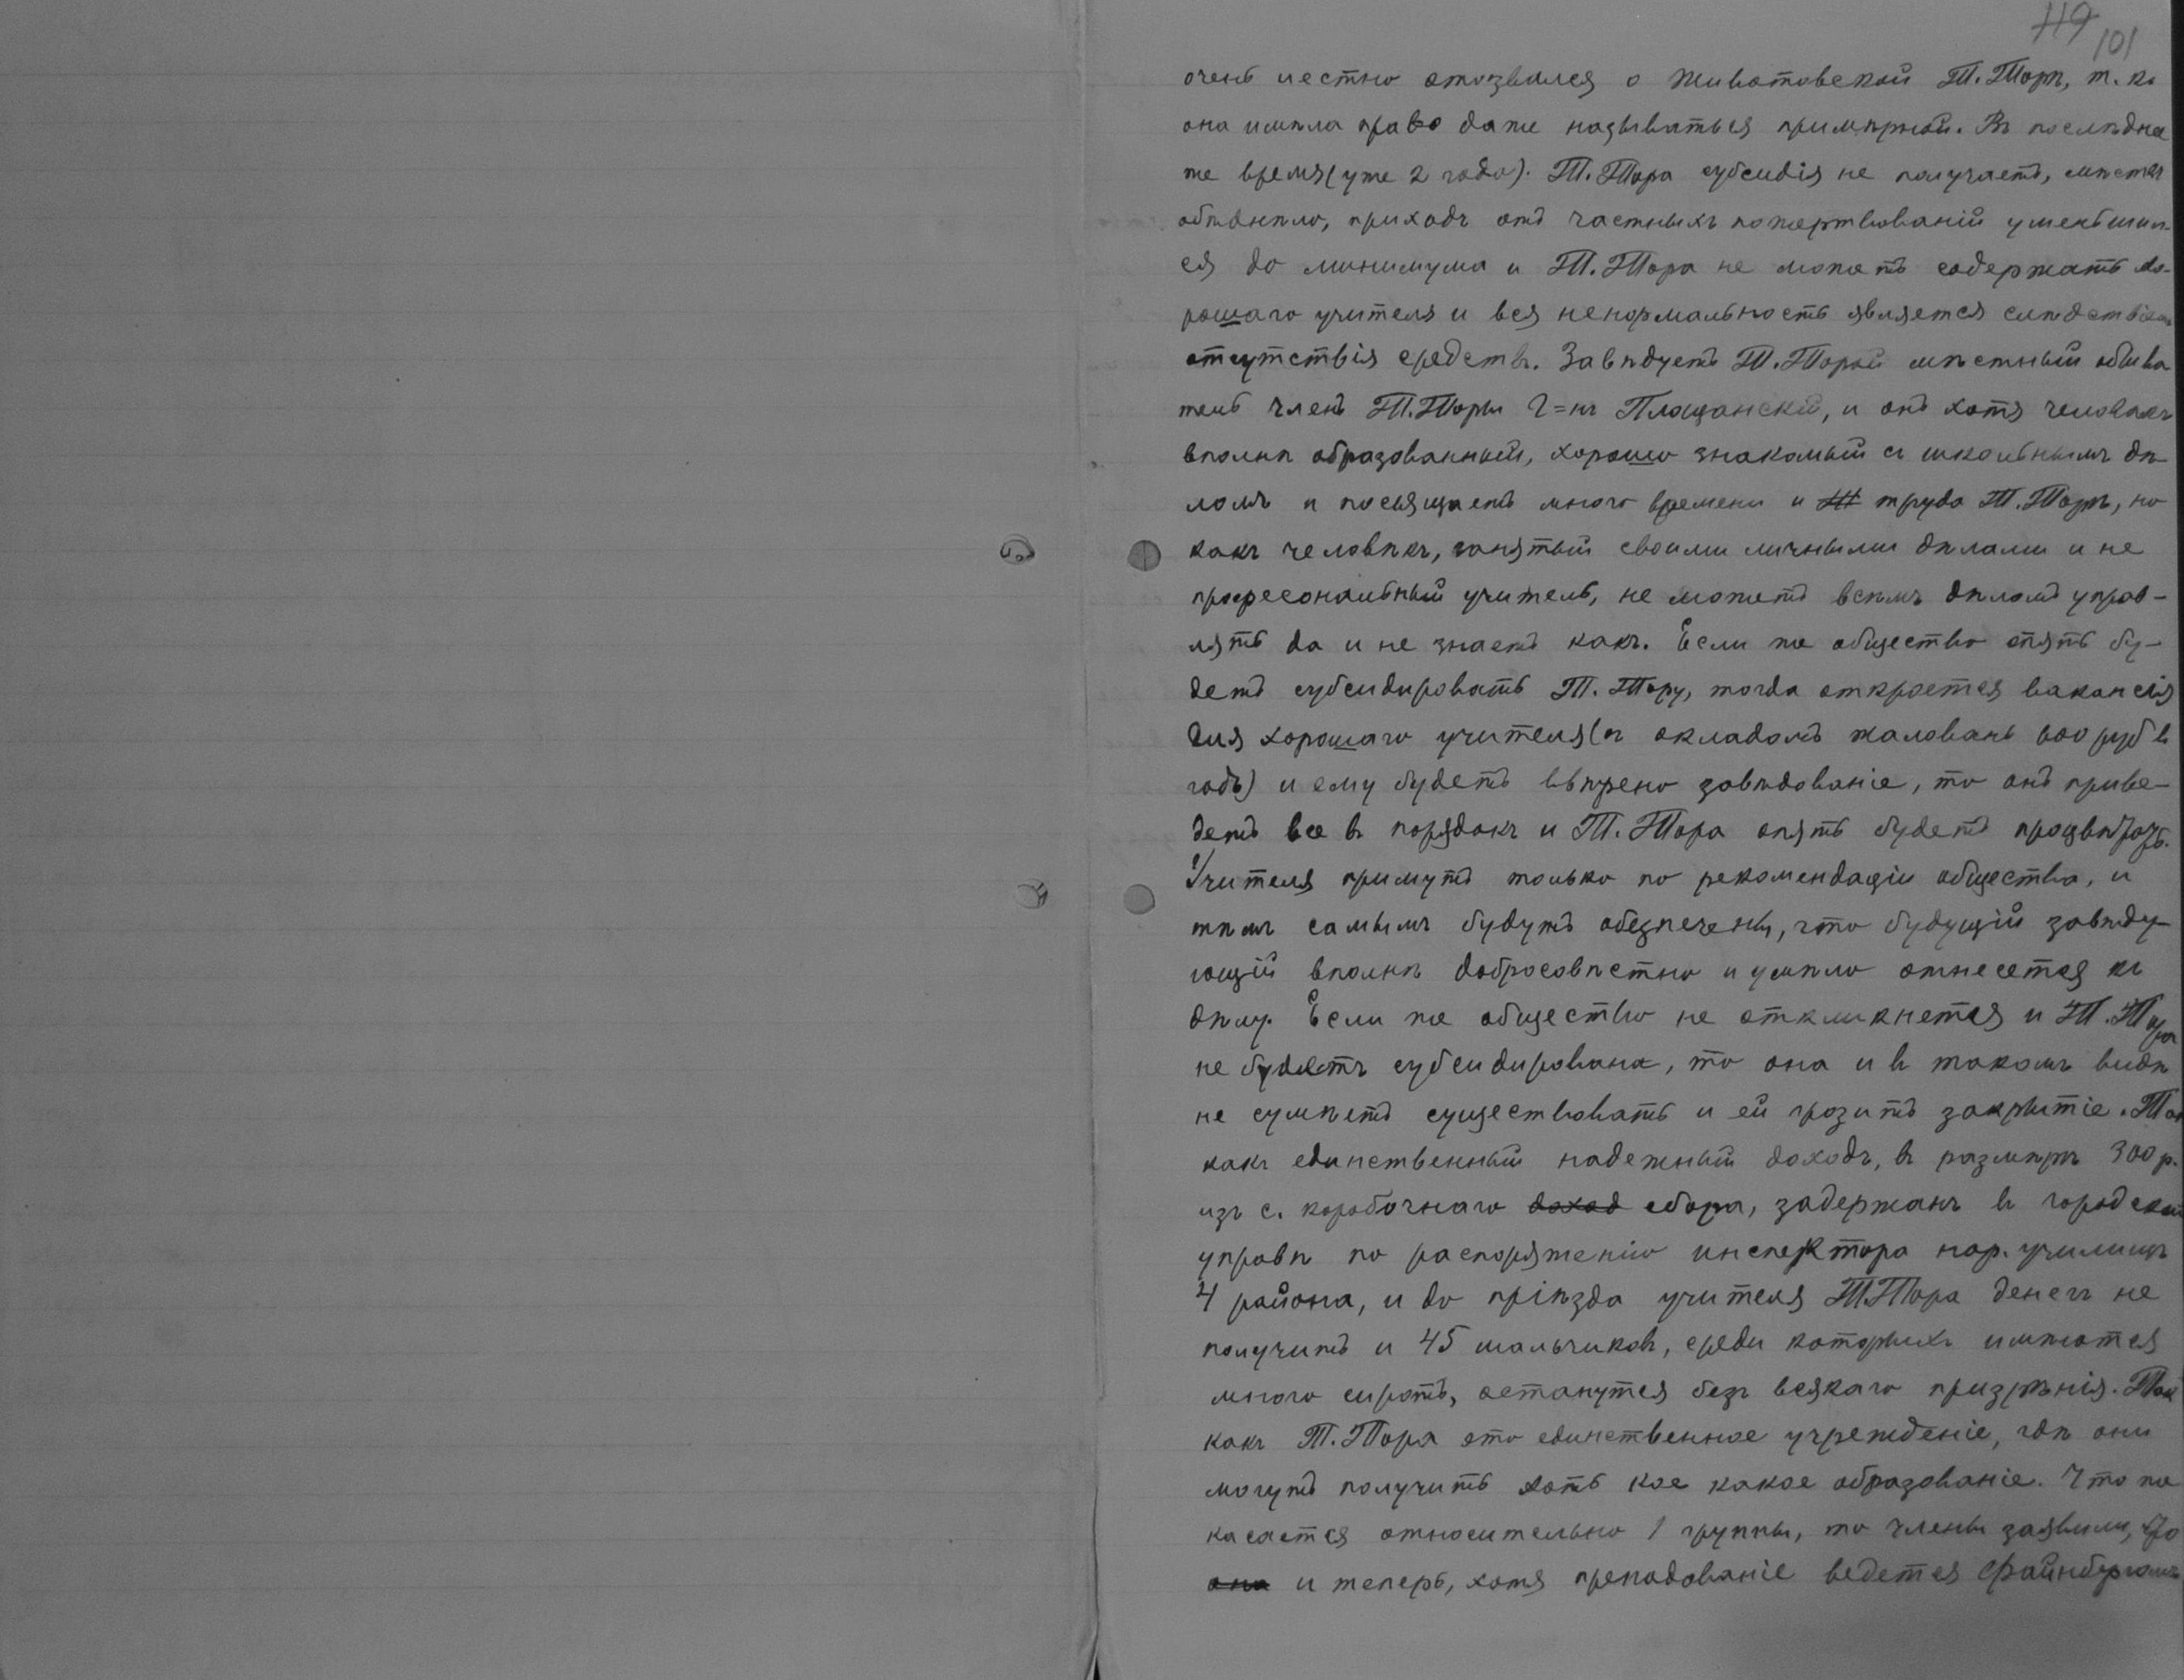 119 101
очень лестно отозвался о Животовской Т.Торѣ, т.къ
она имѣла право даже называться примѣрной. Въ послѣднее
же время (уже 2 года). Т.Тора субсидія не получаетъ, мѣстечко
обѣднѣло, приходъ отъ частныхъ пожертвованій уменьшил-
ся до минимума и Т.Тора не можетъ содержать хо-
рошаго учителя и вся ненормальность является слѣдствіемъ
отсутствія средствъ. Завѣдуетъ Т.Торой мѣстный обыва
тель членъ Т.Торы Г=нъ Площанскій, и онъ хотя человѣкъ
вполнѣ образованный, хорошо знакомый съ школьнымъ дѣ-
ломъ и посвящаетъ много времени и труда Т.Торѣ, но
какъ человѣкъ, занятый своими личными дѣлами и не
професональный учитель, не можетъ всѣмъ дѣломъ управ-
лять да и не знаетъ какъ. Если же общество опять бу-
детъ субсидировать Т.Тору, тогда откроется вакансія
для хорошаго учителя (съ окладомъ жаловань 600 руб въ
годъ) и ему будетъ ввѣрено завѣдованіе, то онъ приве-
детъ все въ порядокъ и Т.Тора опять будетъ процвѣтать.
Учителя примутъ только по рекомендаціи общества, и
тѣмъ самымъ будутъ обезпечены, что будущій завѣду-
ющій вполнѣ добросовѣстно и умѣло отнесется къ
дѣлу. Если же общество не откликнется и Т.Тора
не будетъ субсидирована, то она и въ такомъ видѣ
не сумѣетъ существовать и ей грозитъ закрытіе. Такъ
какъ единственный надежный доходъ, въ размѣрѣ 300 р.
изъ с. коробочнаго доход сбора, задержанъ въ городской
управѣ по распоряженію инспектора нар. училищъ
4 района, и до пріѣзда учителя Т.Тора денегъ не
получитъ и 45 мальчиковъ, среди которыхъ имѣются
много сиротъ, останутся безъ всякаго призрѣнія. Такъ
какъ Т.Тора это единственное учрежденіе, гдѣ они
могутъ получить хоть кое какое образованіе. Что же
касается относительно 1 группы, то члены заявили, что
она и теперь, хотя преподованіе ведется Файнбергомъ